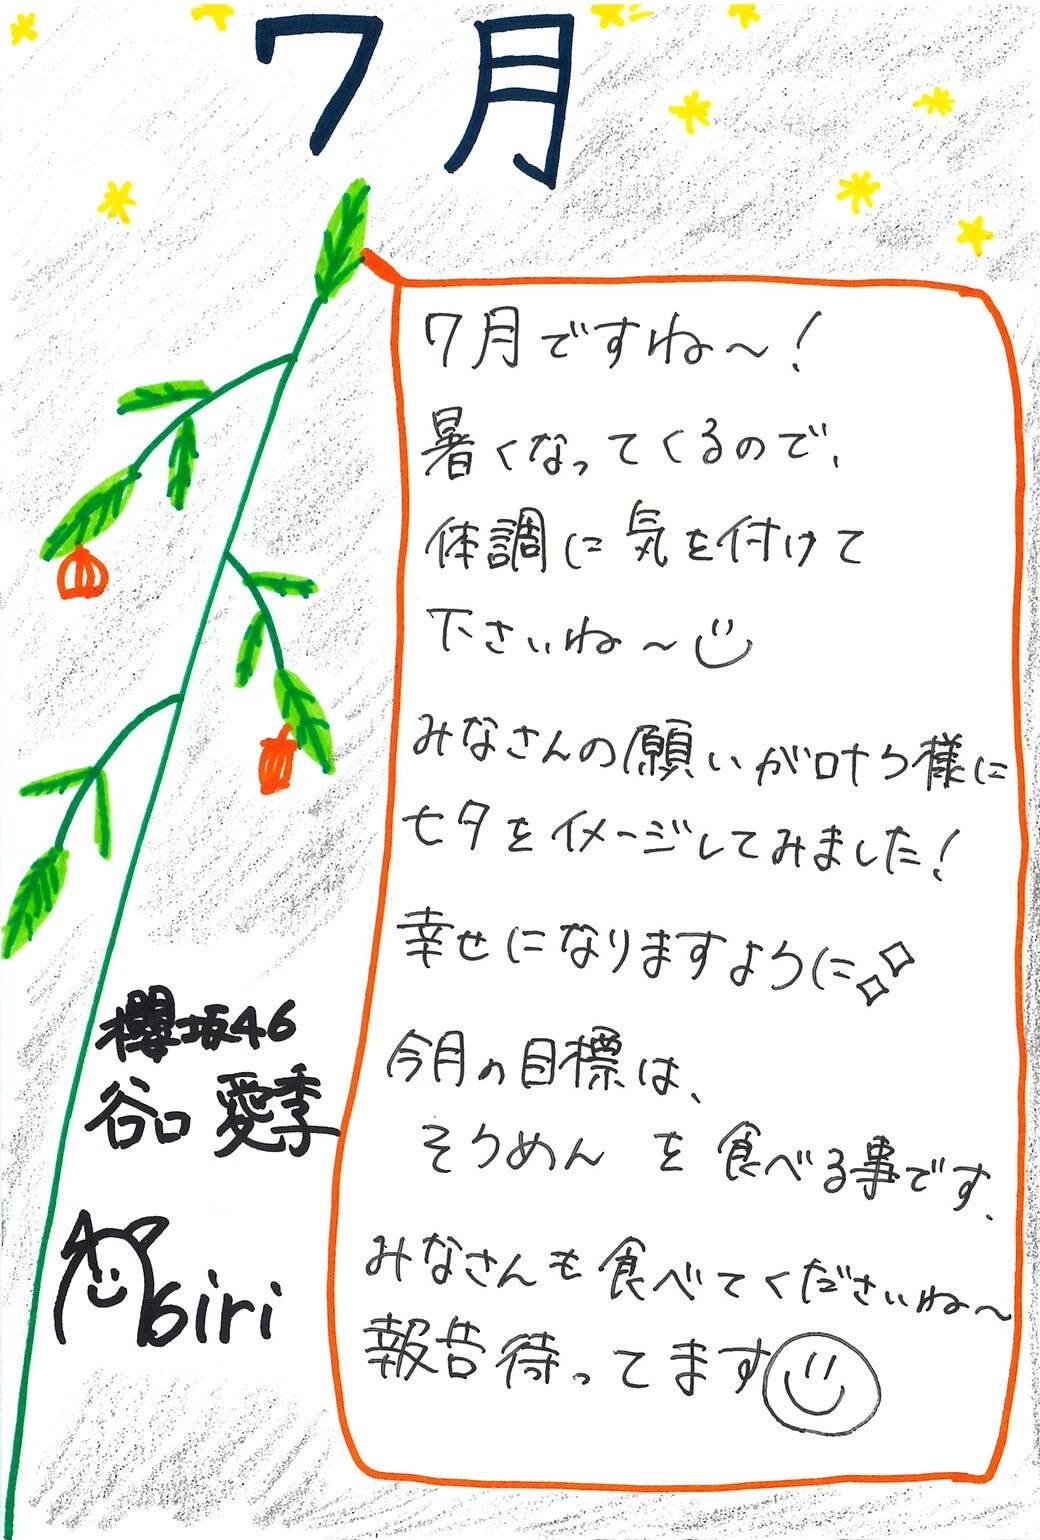 7月
7月ですね〜！
暑くなってくるので、
体調に気を付けて
下さいね〜
みなさんの願いが叶う様に
七夕をイメージしてみました！
幸せになりますように
今月の目標は、
そうめん を食べる事です、
みなさんも食べてくださいね〜
報告待ってます
櫻坂46
谷口 愛季
Airi